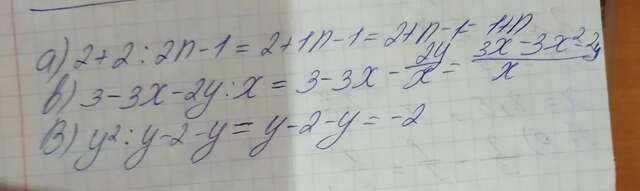 а) 2+2:2n-1=2+1n-1=2+n-1=1+n
б) 3-3x-2y:x=3-3x-2y/x=3x-3x²-2y/x
в) y²:y-2-y=y-2-y=-2